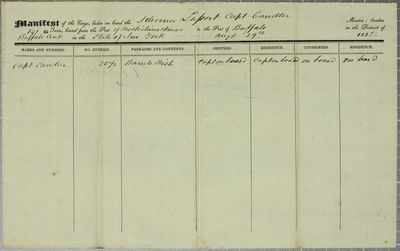 Manifest of the Cargo, laden on board the Schooner Tapsport Capt Candler Master; burden
Tons, bound from the Port of Michilimackinac to the Port of Buffalo in the District of
Buffalo Creek in the State of New York Augt 29th 1835.
MARKS AND NUMBERS. NO. ENTRIES. PACKAGES AND CONTENTS. SHIPPERS. RESIDENCE. CONSIGNEES. RESIDENCE.
Capt Candler Barrels Fish capt on board capt on board on board on board